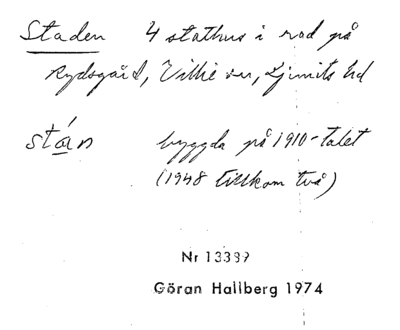 Staden 4 stathus i rad på
Rydsgård, Villie sn, Ljunits hd
stán byggda på 1910-talet
(1948 tillkom två)
Nr 13389
Göran Hallberg 1974